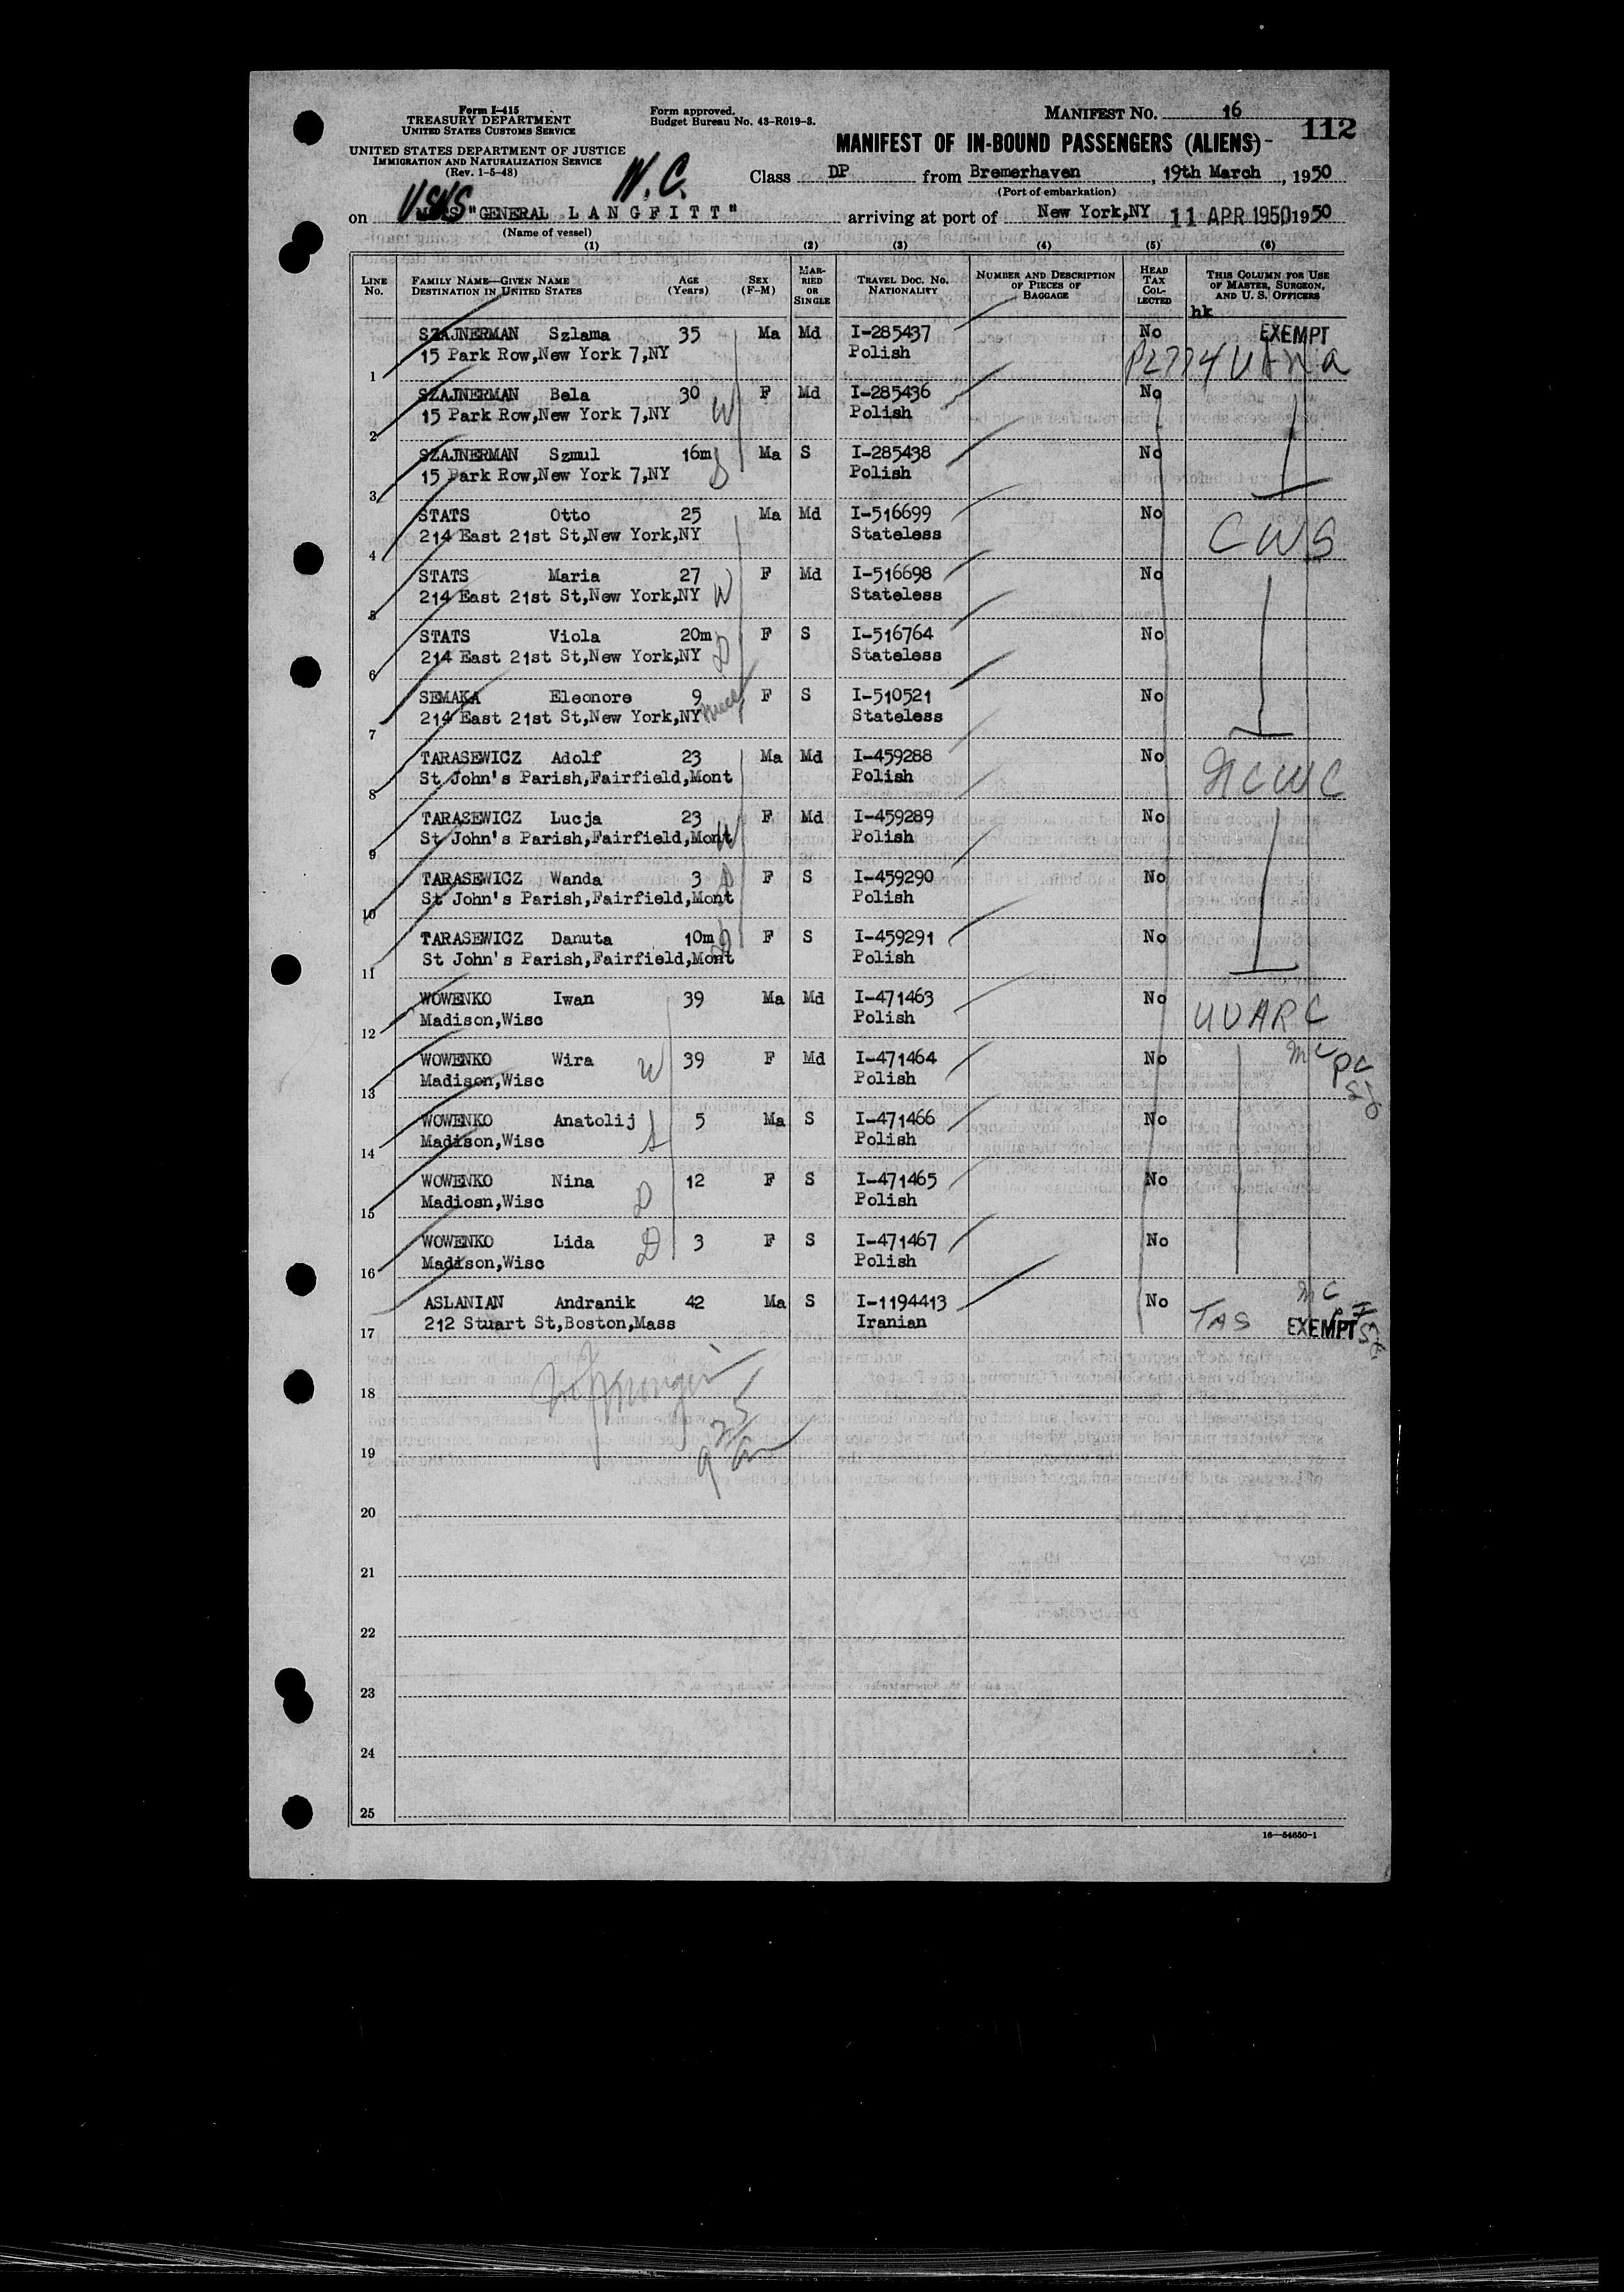 Form I-415
TREASURY DEPARTMENT
UNITED STATES CUSTOMS SERVICE
UNITED STATES DEPARTMENT OF JUSTICE
IMMIGRATION AND NATURALIZATION SERVICE
(Rev. 1-5-48)
Form approved.
Budget Bureau No. 43-R019-3.
MANIFEST NO. 16
112
MANIFEST OF IN-BOUND PASSENGERS (ALIENS)
N.C.
Class DP from Bremerhaven, 19th March, 1950
(Port of embarkation)
on USNS "GENERAL LANGFITT" arriving at port of New York,NY 11 APR 1950 1950
(Name of vessel)
(1) (2) (3) (4) (5) (6)
LINE No. FAMILY NAME—GIVEN NAME DESTINATION IN UNITED STATES AGE (Years) SEX (F-M) MARRIED OR SINGLE TRAVEL DOC. NO. NATIONALITY NUMBER AND DESCRIPTION OF PIECES OF BAGGAGE HEAD TAX COLLECTED THIS COLUMN FOR USE OF MASTER, SURGEON, AND U. S. OFFICERS
hk
SZAJNERMAN Szlama 35 Ma Md I-285437 No EXEMPT
1 15 Park Row,New York 7,NY Polish
SZAJNERMAN Bela 30 W F Md I-285436 No
2 15 Park Row,New York 7,NY Polish
SZAJNERMAN Szmul 16m Ma S I-285438 No
3 15 Park Row,New York 7,NY Polish
STATS Otto 25 Ma Md I-516699 No CWS
4 214 East 21st St,New York,NY Stateless
STATS Maria 27 W F Md I-516698 No
5 214 East 21st St,New York,NY Stateless
STATS Viola 20m D F S I-516764 No
6 214 East 21st St,New York,NY Stateless
SEMAKA Eleonore 9 niece F S I-510521 No
7 214 East 21st St,New York,NY Stateless
TARASEWICZ Adolf 23 Ma Md I-459288 No NCWC
8 St John's Parish,Fairfield,Mont Polish
TARASEWICZ Lucja 23 W F Md I-459289 No
9 St John's Parish,Fairfield,Mont Polish
TARASEWICZ Wanda 3 D F S I-459290 No
10 St John's Parish,Fairfield,Mont Polish
TARASEWICZ Danuta 10m D F S I-459291 No
11 St John's Parish,Fairfield,Mont Polish
WOWENKO Iwan 39 Ma Md I-471463 No UUARC
12 Madison,Wisc Polish
WOWENKO Wira W 39 F Md I-471464 No
13 Madison,Wisc Polish
WOWENKO Anatolij 5 Ma S I-471466 No
14 Madison,Wisc Polish
WOWENKO Nina D 12 F S I-471465 No
15 Madiosn,Wisc Polish
WOWENKO Lida D 3 F S I-471467 No
16 Madison,Wisc Polish
ASLANIAN Andranik 42 Ma S I-1194413 No TAS MC EXEMPT
17 212 Stuart St,Boston,Mass Iranian
18
19
20
21
22
23
24
25
16—54650-1